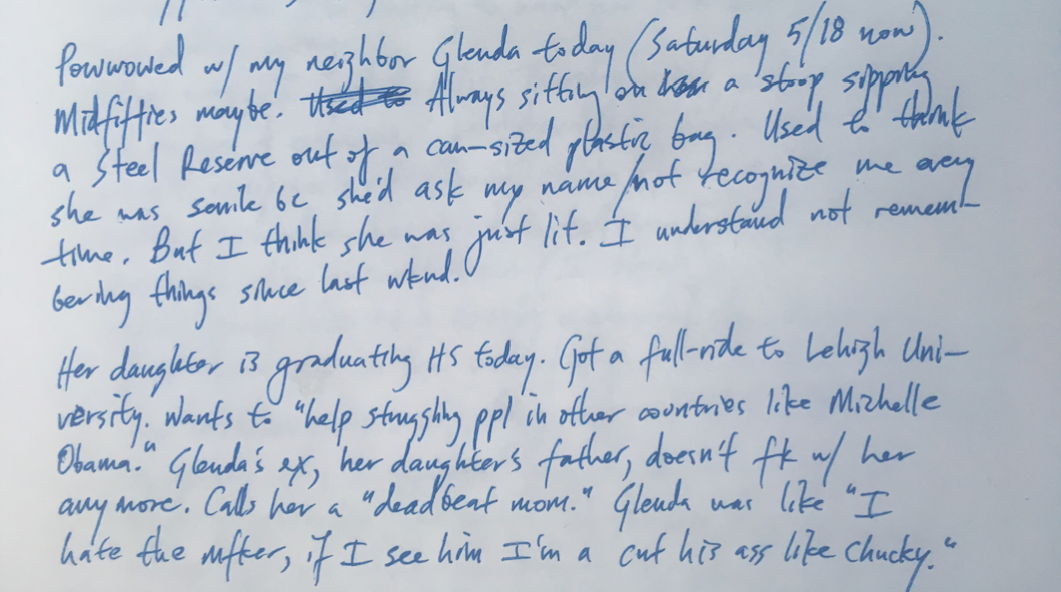 Powwowed w/ my neighbor Glenda today (Saturday 5/18 now).
Midfifties maybe. Used to Always sitting on a stoop sipping
a Steel Reserve out of a can-sized plastic bag. Used to think
she was senile bc she'd ask my name/not recognize me every
time. But I think she was just lit. I understand not remem-
bering things since last wknd.
Her daughter is graduating HS today. Got a full-ride to Lehigh Uni-
versity. Wants to "help struggling ppl in other countries like Michelle
Obama." Glenda's ex, her daughter's father, doesn't fk w/ her
anymore. Calls her a "deadbeat mom." Glenda was like "I
hate the mfker, if I see him I'm a cut his ass like Chucky."